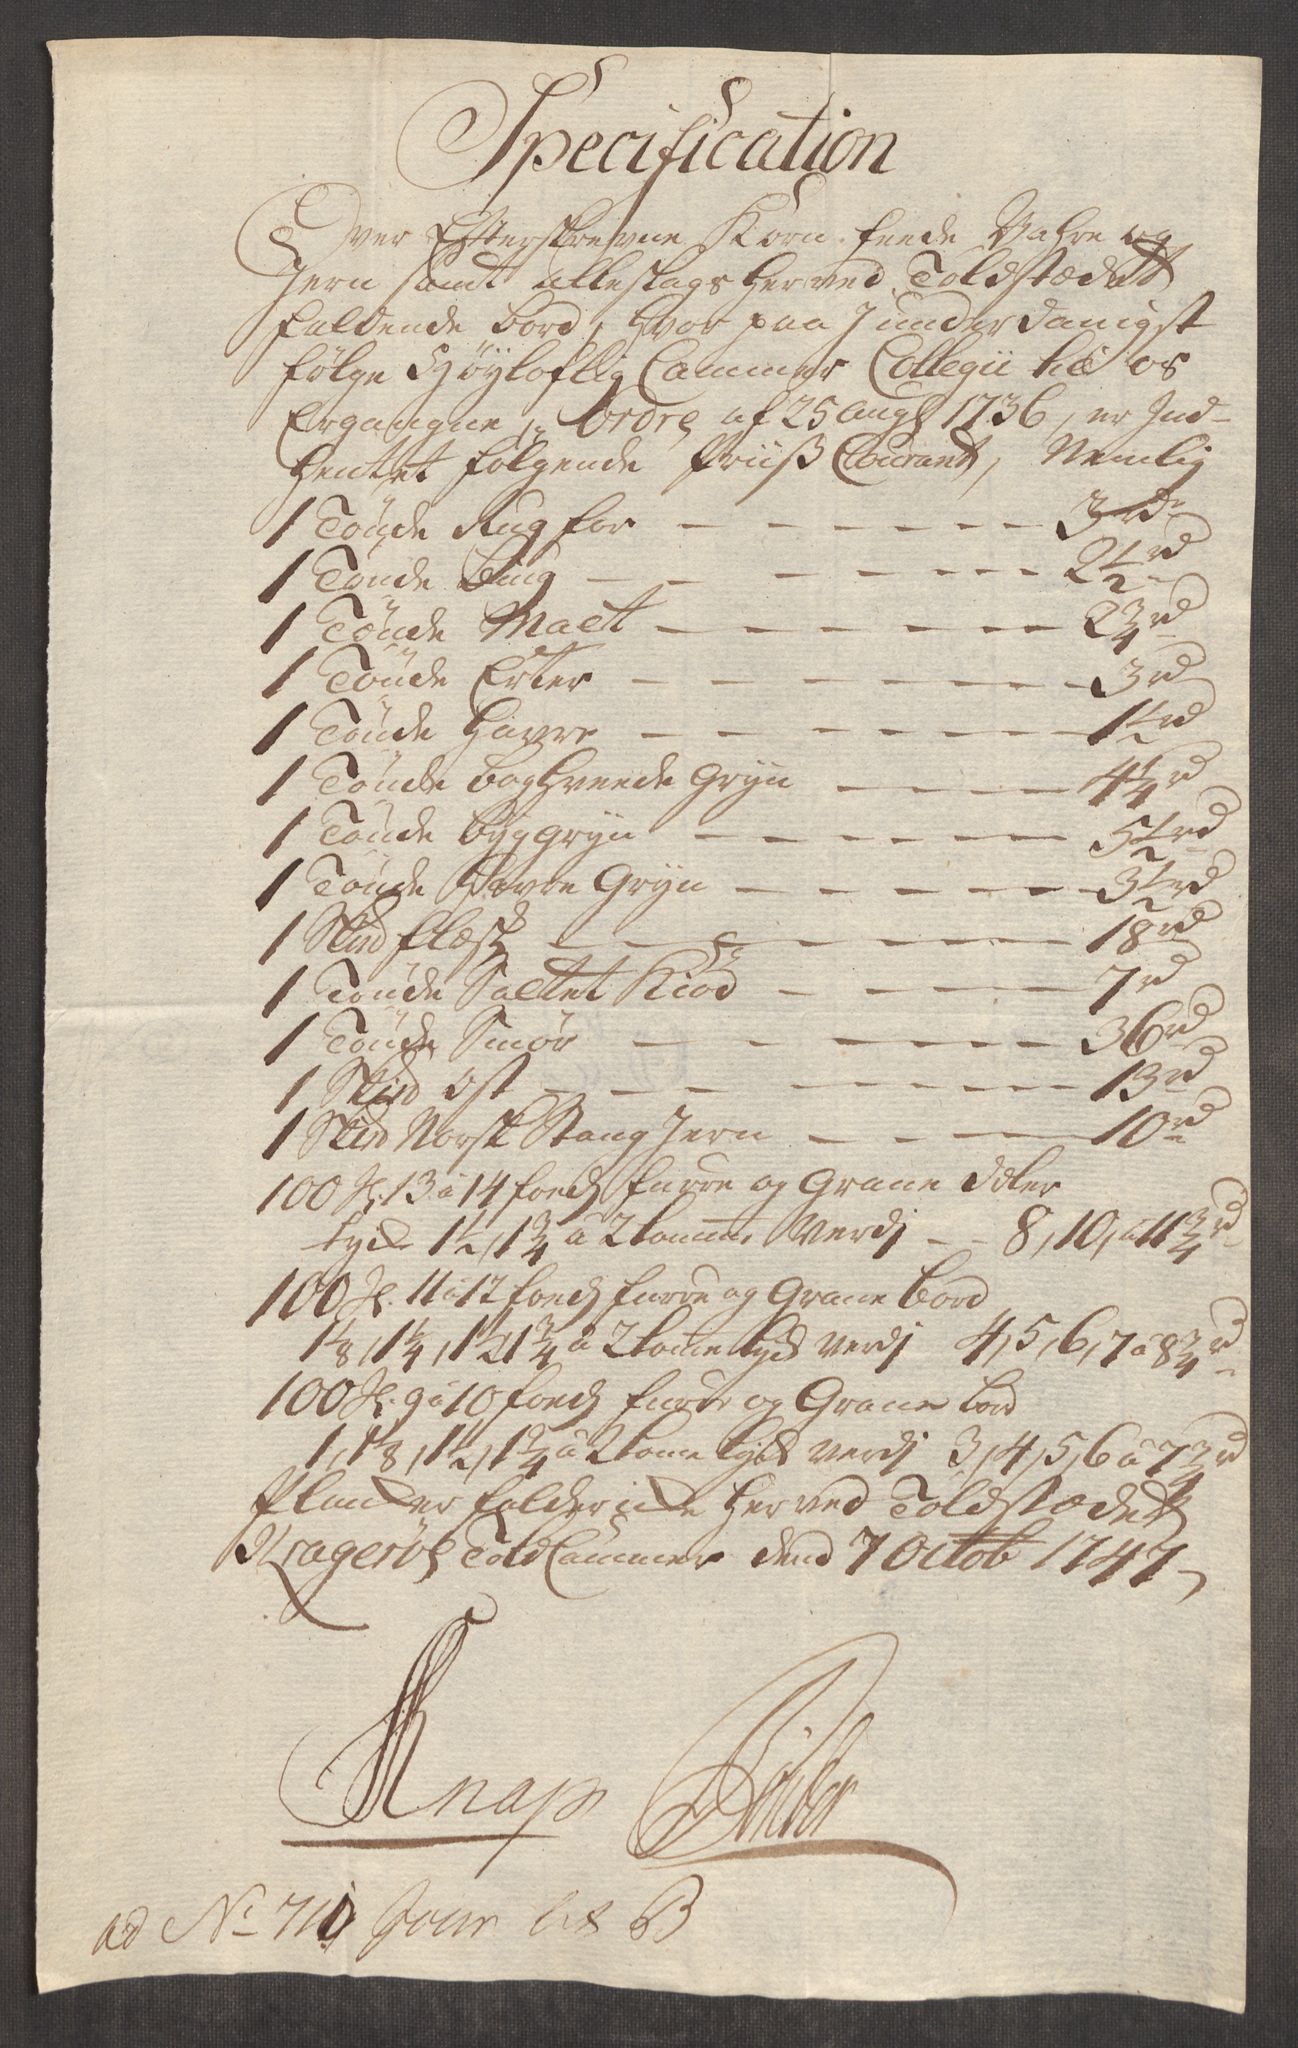 Specification
Over Efterskrevne Korn. feede Vahre og
Jern samt alleslags her ved Toldstædet
faldende bord, hvor paa I underdanigst
følge Høyloflig Cammer Collegii til os
Ergangne Ordre af 25 Augt 1736, er Ind-
hentet følgende Priiss Courant, Nemlig
1 Tønde Rug for - - - - - 3 rd
1 Tønde Biug - - - - - 2 1/2 rd
1 Tønde Malt - - - - - 2 3/4 rd
1 Tønde Erter - - - - - 3 rd
1 Tønde Havre - - - - - 1 1/2 rd
1 Tønde boghveede Gryn - - - - 4 1/4 rd
1 Tønde byggryn - - - - - 5 1/2 rd
1 Tønde Havre Gryn - - - - - 3 1/2 rd
1 Skpd flæsk - - - - - 18 rd
1 Tønde Saltet Kiød - - - - 7 rd
1 Tønde Smør - - - - - 36 rd
1 Skpd Ost - - - - - 13 rd
1 Skpd Norsk Stang Jern - - - - 10 rd
100 St. 13 à 14 foeds furre og Grane Deler
tyck 1 1/2, 1 3/4 à 2 tomme Verdj - - 8, 10, à 11 3/4 rd
100 St. 11 à 12 foeds furre og Grane bord
1 1/8, 1 1/4, 1 1/2, 1 3/4 à 2 tomme tyck Verdj 4, 5, 6, 7 à 8 3/4 rd
100 St. 9 à 10 foeds furre og Grane bord
1, 1 1/8, 1 1/2, 1 3/4 à 2 tomme tyck Verdj 3, 4, 5, 6 à 7 3/4 rd
Plancker falder icke her ved Toldstædet
Kragerøe Told Cammer dend 7 Octob 1747
Knap
ad No 710 Jour Lit B